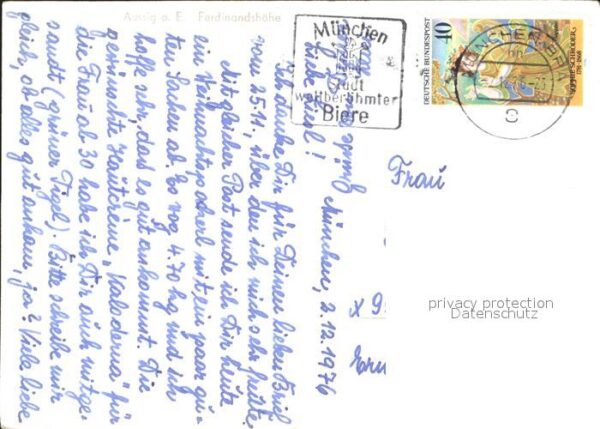 Aussig a. E. Ferdinandshöhe
München
Stadt
weltberühmter
Biere
DEUTSCHE BUNDESPOST
40
SOPHIE SCHRÖDER
1781-1868
MÜNCHEN
Frau
x 9
privacy protection
Datenschutz
München, 2.12.1976
ich danke Dir für Deinen lieben Brief
vom 25.11., über den ich mich sehr freute.
Mit gleicher Post sende ich Dir heute
ein Weihnachtspackerl mit ein paar gu-
te Sachen ab. Es wog 4.70 kg und ich
hoffe sehr, daß es gut ankommt. Die
gewünschte Hautcreme "Kaloderma" für
die Frau 30 habe ich Dir auch mitge-
sandt (grüner Tigel). Bitte schreibe mir
gleich, ob alles gut ankam, ja? Viele liebe